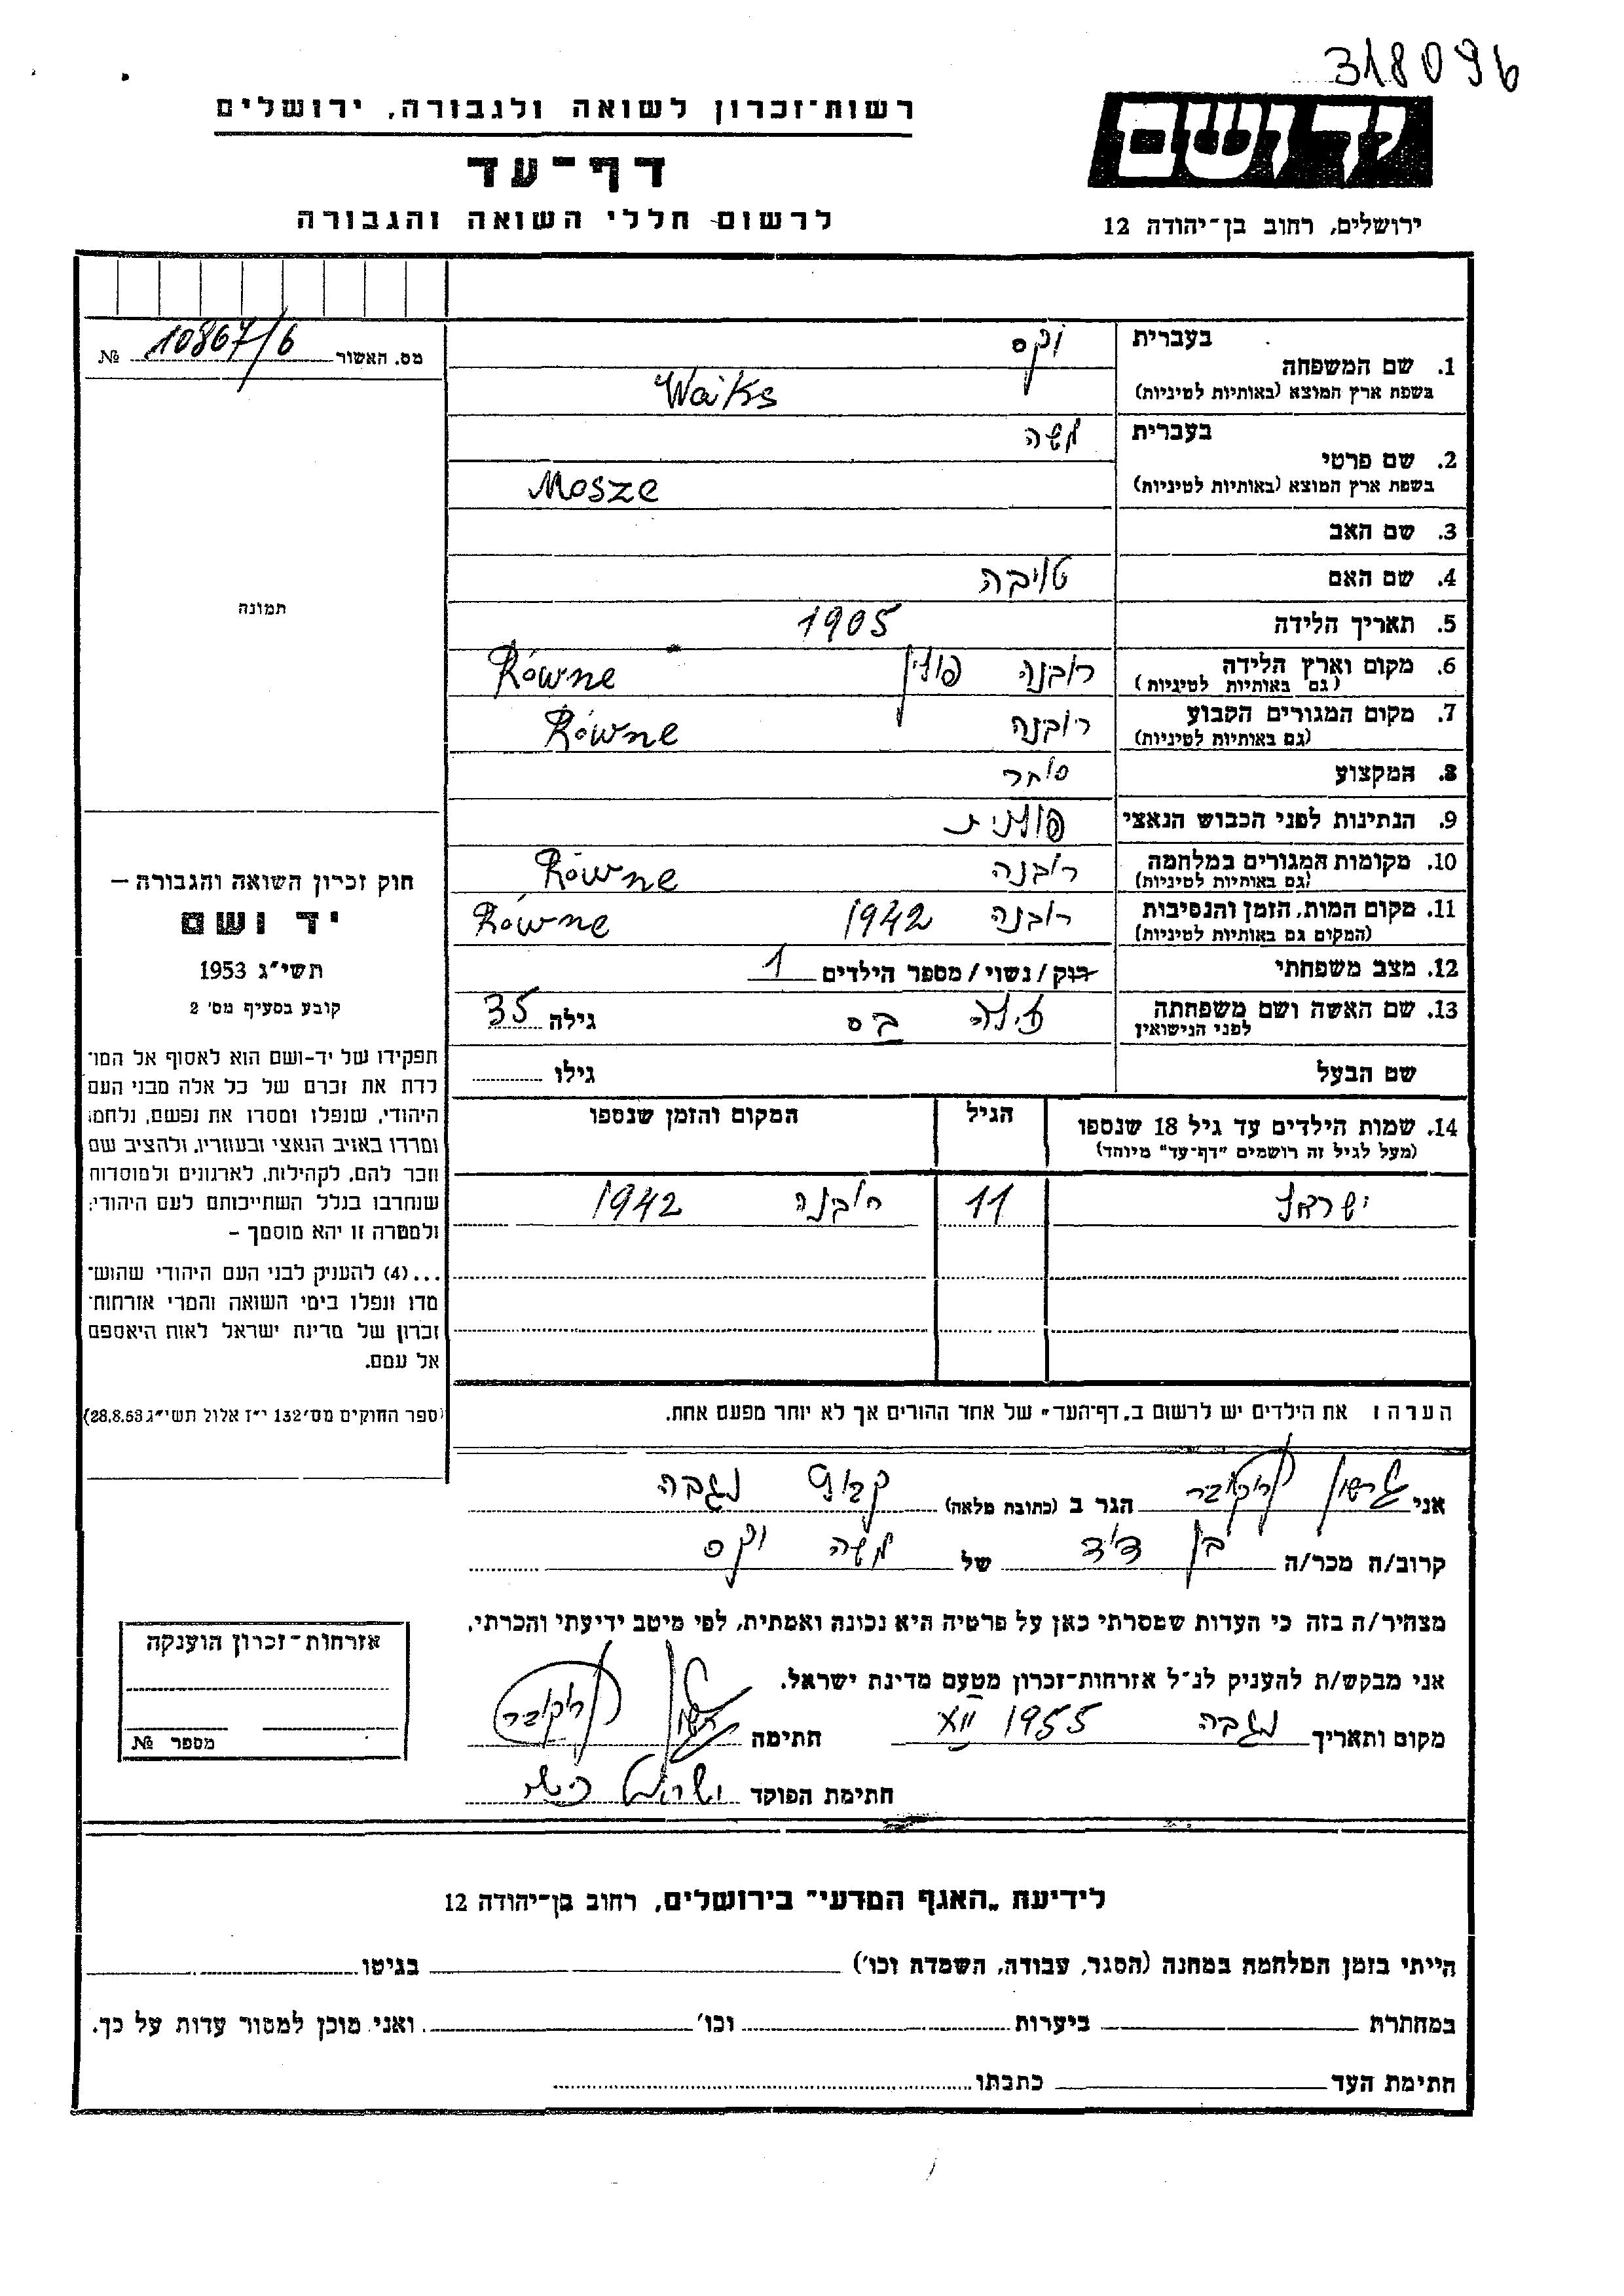 318096
רשות־זכרון לשואה ולגבורה, ירושלים
יד ושם
דף־עד
לרשום חללי השואה והגבורה
ירושלים, רחוב בן־יהודה 12
מס. האשור 10867/6 №
תמונה
חוק זכרון השואה והגבורה —
יד ושם
תשי״ג 1953
קובע בסעיף מס׳ 2
תפקידו של יד-ושם הוא לאסוף אל המו־
לדת את זכרם של כל אלה מבני העם
היהודי, שנפלו ומסרו את נפשם, נלחמו
ומרדו באויב הנאצי ובעוזריו, ולהציב שם
וזכר להם, לקהילות, לארגונים ולמוסדות
שנחרבו בגלל השתייכותם לעם היהודי;
ולמטרה זו יהא מוסמך —
...(4) להעניק לבני העם היהודי שהוש־
מדו ונפלו בימי השואה והמרי אזרחות־
זכרון של מדינת ישראל לאות היאספם
אל עמם.
(ספר החוקים מס׳ 132 י״ז אלול תשי״ג 28.8.53)
בעברית וקס
1. שם המשפחה
בשפת ארץ המוצא (באותיות לטיניות) Waiks
בעברית משה
2. שם פרטי
בשפת ארץ המוצא (באותיות לטיניות) Mosze
3. שם האב
4. שם האם טויבה
5. תאריך הלידה 1905
6. מקום וארץ הלידה רובנה פולין Równe
(גם באותיות לטיניות)
7. מקום המגורים הקבוע רובנה Równe
(גם באותיות לטיניות)
8. המקצוע סוחר
9. הנתינות לפני הכבוש הנאצי פולנית
10. מקומות המגורים במלחמה רובנה Równe
(גם באותיות לטיניות)
11. מקום המות, הזמן והנסיבות רובנה 1942 Równe
(המקום גם באותיות לטיניות)
12. מצב משפחתי רוק/נשוי/מספר הילדים 1
13. שם האשה ושם משפחתה בס גילה 35
לפני הנישואין
שם הבעל גילו
14. שמות הילדים עד גיל 18 שנספו הגיל המקום והזמן שנספו
(מעל לגיל זה רושמים ״דף־עד״ מיוחד)
ישראל 11 רובנה 1942
הערה: את הילדים יש לרשום ב„דף־העד״ של אחד ההורים אך לא יותר מפעם אחת.
אני גרשון הגר ב (כתובת מלאה) קבוץ נגבה
קרוב/ה מכר/ה בן דוד של משה וקס
מצהיר/ה בזה כי העדות שמסרתי כאן על פרטיה היא נכונה ואמתית, לפי מיטב ידיעתי והכרתי.
אני מבקש/ת להעניק לנ״ל אזרחות־זכרון מטעם מדינת ישראל.
מקום ותאריך נגבה 1955 XII חתימה גרשון
חתימת הפוקד
אזרחות־זכרון הוענקה
מספר №
לידיעת „האגף המדעי״ בירושלים, רחוב בן־יהודה 12
הייתי בזמן המלחמה במחנה (הסגר, עבודה, השמדה וכו׳) בגיטו
במחתרת ביערות וכו׳ ואני מוכן למסור עדות על כך.
חתימת העד כתבתו